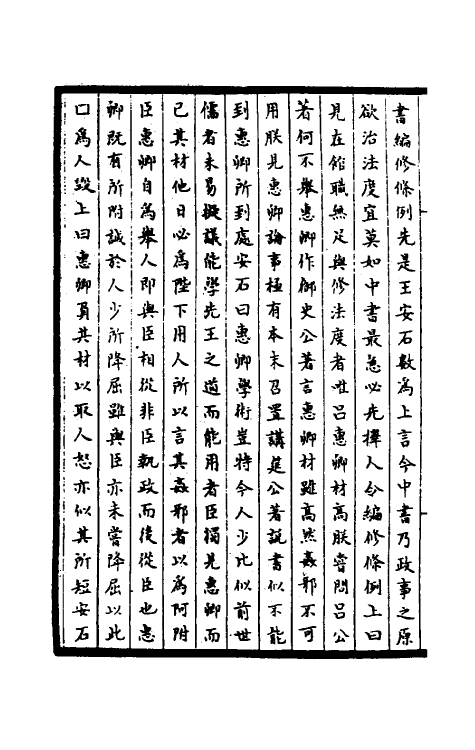 書編修條例先是王安石數為上言今中書乃政事之原
欲治法度宜莫如中書最急必先擇人令編修條例上曰
見在館職無足與修法度者唯呂惠卿材高朕嘗問呂公
著何不舉惠卿作御史公著言惠卿材雖高然姦邪不可
用朕見惠卿論事極有本末召置講筵公著說書似不能
到惠卿所到處安石曰惠卿學術豈特今人少比似前世
儒者未易擬議能學先王之道而能用者臣獨見惠卿而
已其材他日必為陛下用人所以言其姦邪者以為阿附
臣惠卿自為舉人即與臣相從非臣執政而後從臣也惠
卿既有所附誠於人少所降屈雖與臣亦未嘗降屈以此
口為人毀上曰惠卿負其材以取人怨亦似其所短安石